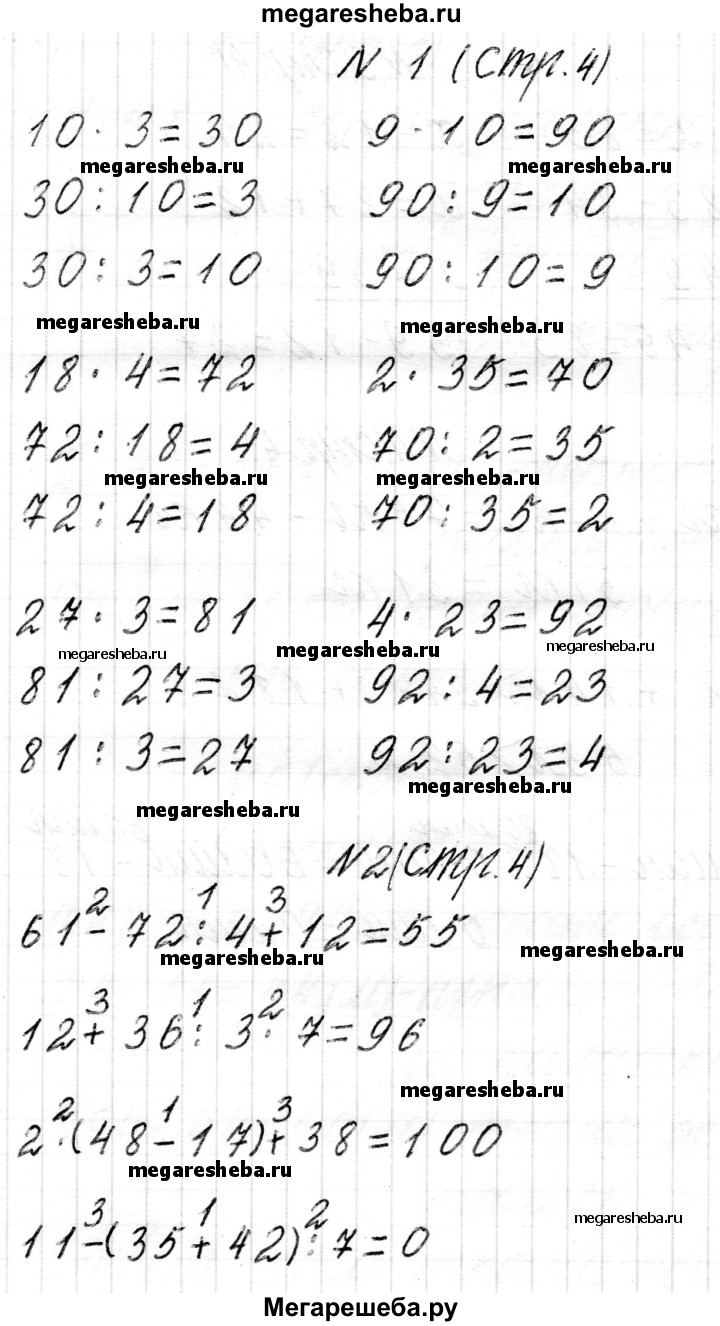 megaresheba.ru
N 1 (Стр. 4)
10 · 3 = 30 9 · 10 = 90
megaresheba.ru megaresheba.ru
30 : 10 = 3 90 : 9 = 10
30 : 3 = 10 90 : 10 = 9
megaresheba.ru megaresheba.ru
18 · 4 = 72 2 · 35 = 70
72 : 18 = 4 70 : 2 = 35
megaresheba.ru megaresheba.ru
72 : 4 = 18 70 : 35 = 2
27 · 3 = 81 4 · 23 = 92
megaresheba.ru megaresheba.ru megaresheba.ru
81 : 27 = 3 92 : 4 = 23
81 : 3 = 27 92 : 23 = 4
megaresheba.ru megaresheba.ru
N 2 (Стр. 4)
2 1 3
61 - 72 : 4 + 12 = 55
megaresheba.ru megaresheba.ru
3 1 2
12 + 36 : 3 · 7 = 96
megaresheba.ru
2 1 3
2 · (48 - 17) + 38 = 100
megaresheba.ru
3 1 2 megaresheba.ru
11 - (35 + 42) : 7 = 0
Мегарешеба.ру